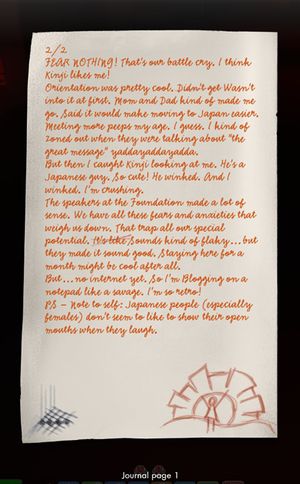 2/2
FEAR NOTHING! That's our battle cry. I think
Kinji likes me!
Orientation was pretty cool. Didn't get Wasn't
into it at first. Mom and Dad kind of made me
go. Said it would make moving to Japan easier.
Meeting more peeps my age. I guess. I kind of
zoned out when they were talking about "the
great message" yaddayaddayadda.
But then I caught Kinji looking at me. He's a
Japanese guy. So cute! He winked. And I
winked. I'm crushing.
The speakers at the Foundation made a lot of
sense. We have all these fears and anxieties that
weigh us down. That trap all our special
potential. It's like Sounds kind of flakey...but
they made it sound good. Staying here for a
month might be cool after all.
But...no internet yet. So I'm Blogging on a
notepad like a savage. I'm so retro!
PS - Note to self: Japanese people (especially
females) don't seem to like to show their open
mouths when they laugh.
Journal page 1